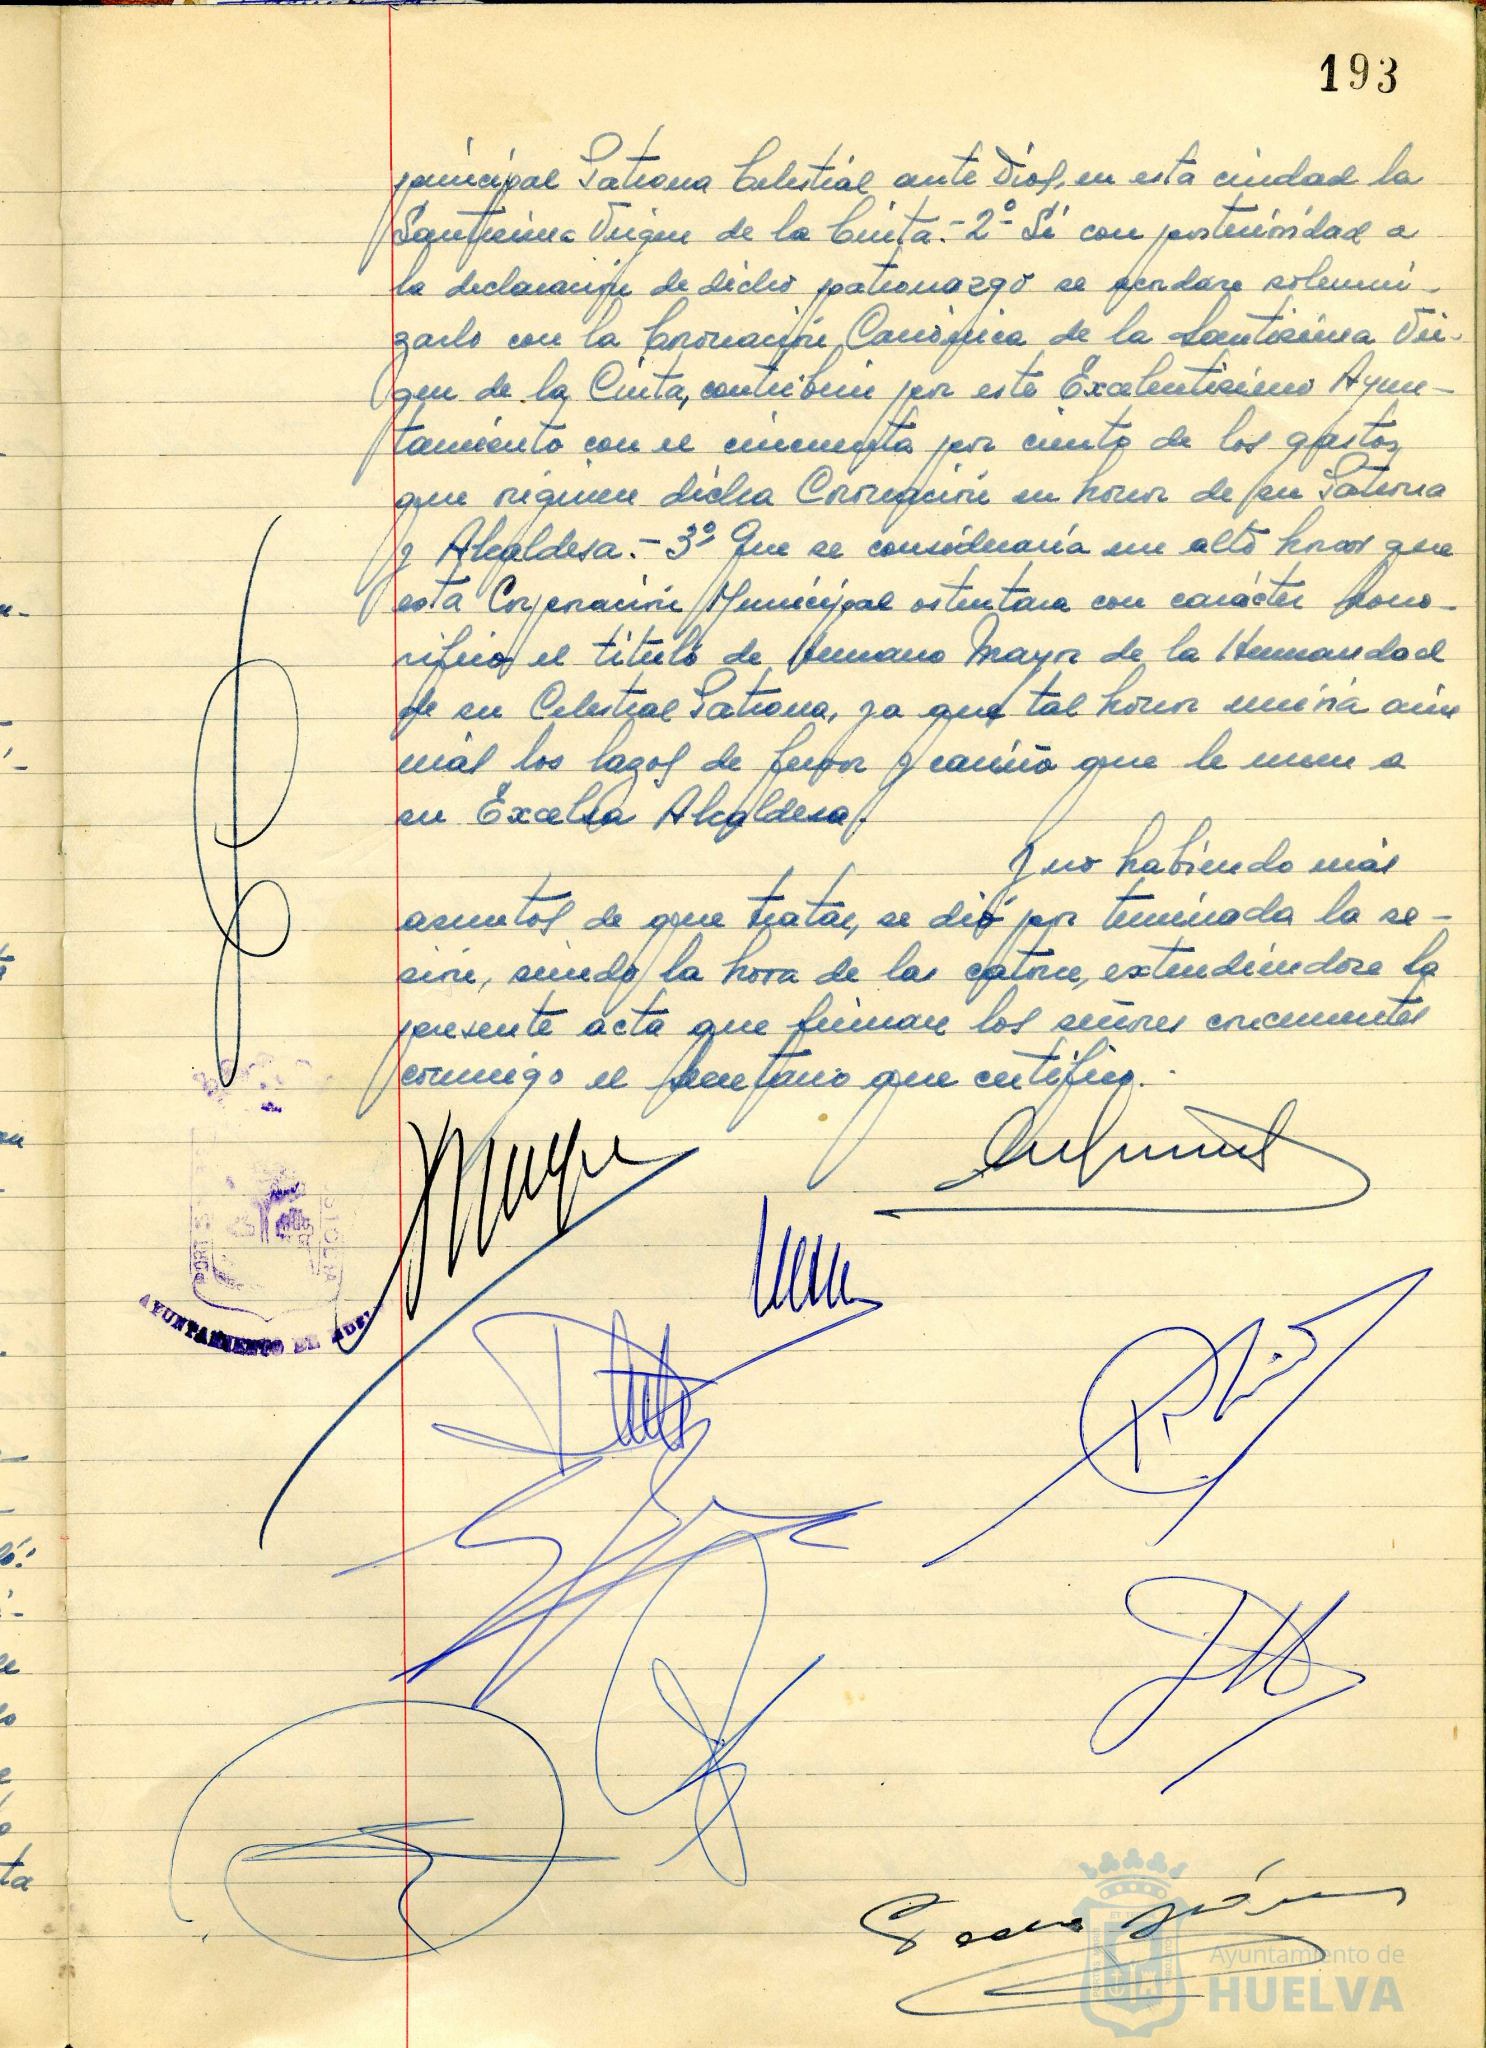 193
principal Patrona Celestial ante Dios, en esta ciudad la
Santísima Virgen de la Cinta.- 2º Si con posterioridad a
la declaración de dicho patronazgo se acordare solemni-
zarlo con la Coronación Canónica de la Santísima Vir-
gen de la Cinta, contribuir por este Excelentísimo Ayun-
tamiento con el cincuenta por ciento de los gastos
que origine dicha Coronación en honor de su Patrona
y Alcaldesa.- 3º Que se consideraría un alto honor que
esta Corporación Municipal ostentara con carácter hono-
rífico el título de Hermano Mayor de la Hermandad
de su Celestial Patrona, ya que tal honor uniría aún
más los lazos de fervor y cariño que le unen a
su Excelsa Alcaldesa.
Y no habiendo más
asuntos de que tratar, se dió por terminada la se-
sión, siendo la hora de las catorce, extendiéndose la
presente acta que firman los señores concurrentes
conmigo el Secretario que certifico.-
AYUNTAMIENTO DE HUELVA
Ayuntamiento de
HUELVA